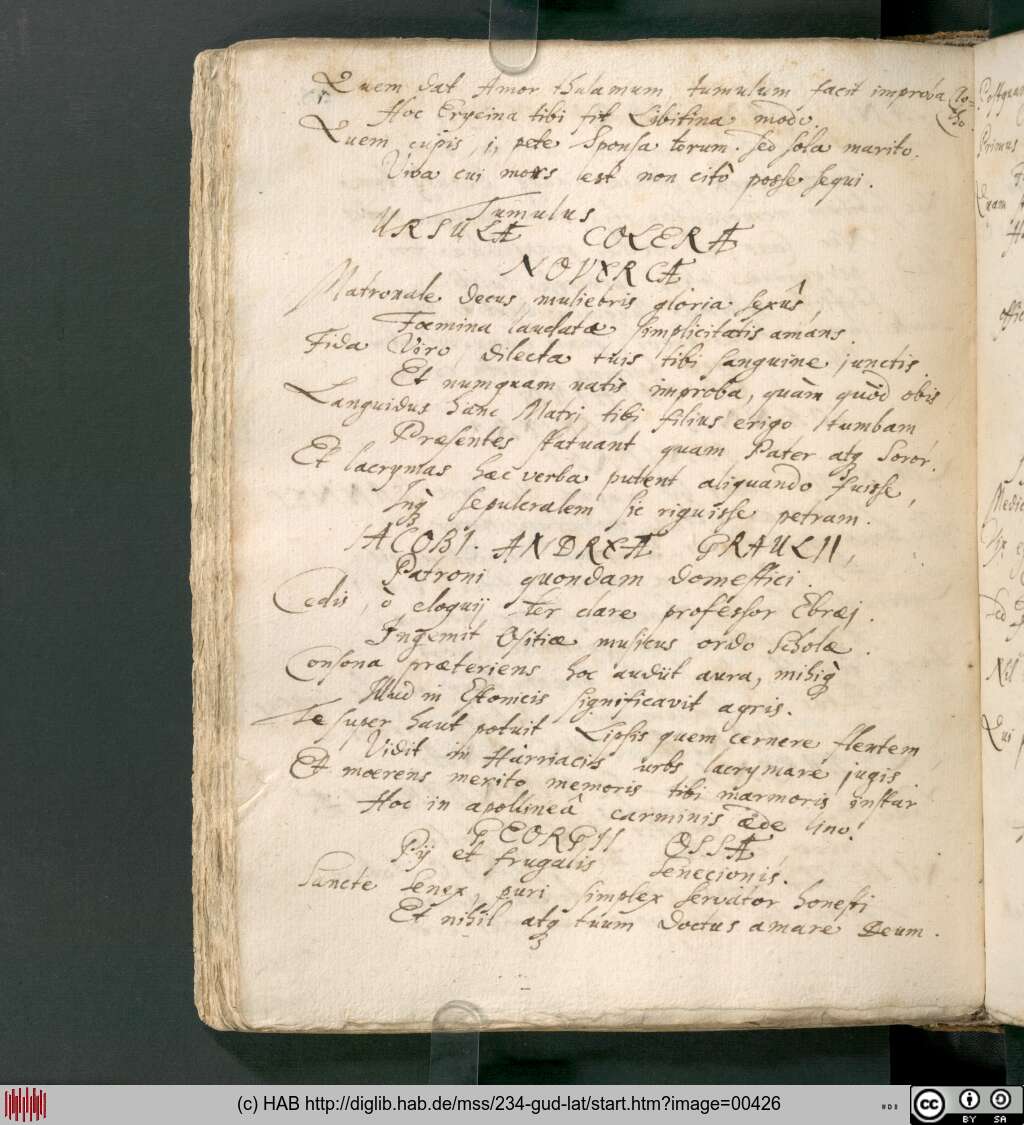 Quem dat Amor thalamum tumulum facit improba Clo=
tho.
Hoc Erycina tibi fit Libitina modo.
Quem cupis, i, pete Sponsa torum. sed sola marito.
Viva cui mors est non citò posse sequi.
Tumulus
URSULÆ COLERÆ
NOVERCÆ
Matronale decus, muliebris gloria sexûs,
Fœmina laudatæ simplicitatis amans.
Fida Viro, dilecta tuis tibi sanguine junctis
Et numquam natis improba, quàm quòd obis
Languidus hanc Matri tibi filius erigo tumbam
Præsentes statuant quam Pater atq Soror.
Et lacrymas hæc verba putent aliquando fuisse,
Inq sepulcralem sic riguisse petram.
IACOBI. ANDREÆ GRAULII,
Patroni quondam domestici.
Cedis, ò eloquij ter clare professor Ebræj.
Ingemit Ositiæ musicus ordo Scholæ.
Consona præteriens hoc audiit aura, mihiq
Illud in Estonicis significavit agris.
Te super haut potuit Lipsis quem cernere flentem
Vidit in Harriaciis urbs lacrymare jugis
Et moerens merito memoris tibi marmoris instar
Hoc in apollineâ carminis æde lino.
GEORGII OSSÆ,
Pij et frugalis Senecionis.
Sancte Senex, puri simplex servator honesti
Et nihil atq tuum doctus amare Deum.
Primus
Nil
(c) HAB http://diglib.hab.de/mss/234-gud-lat/start.htm?image=00426
cc BY SA